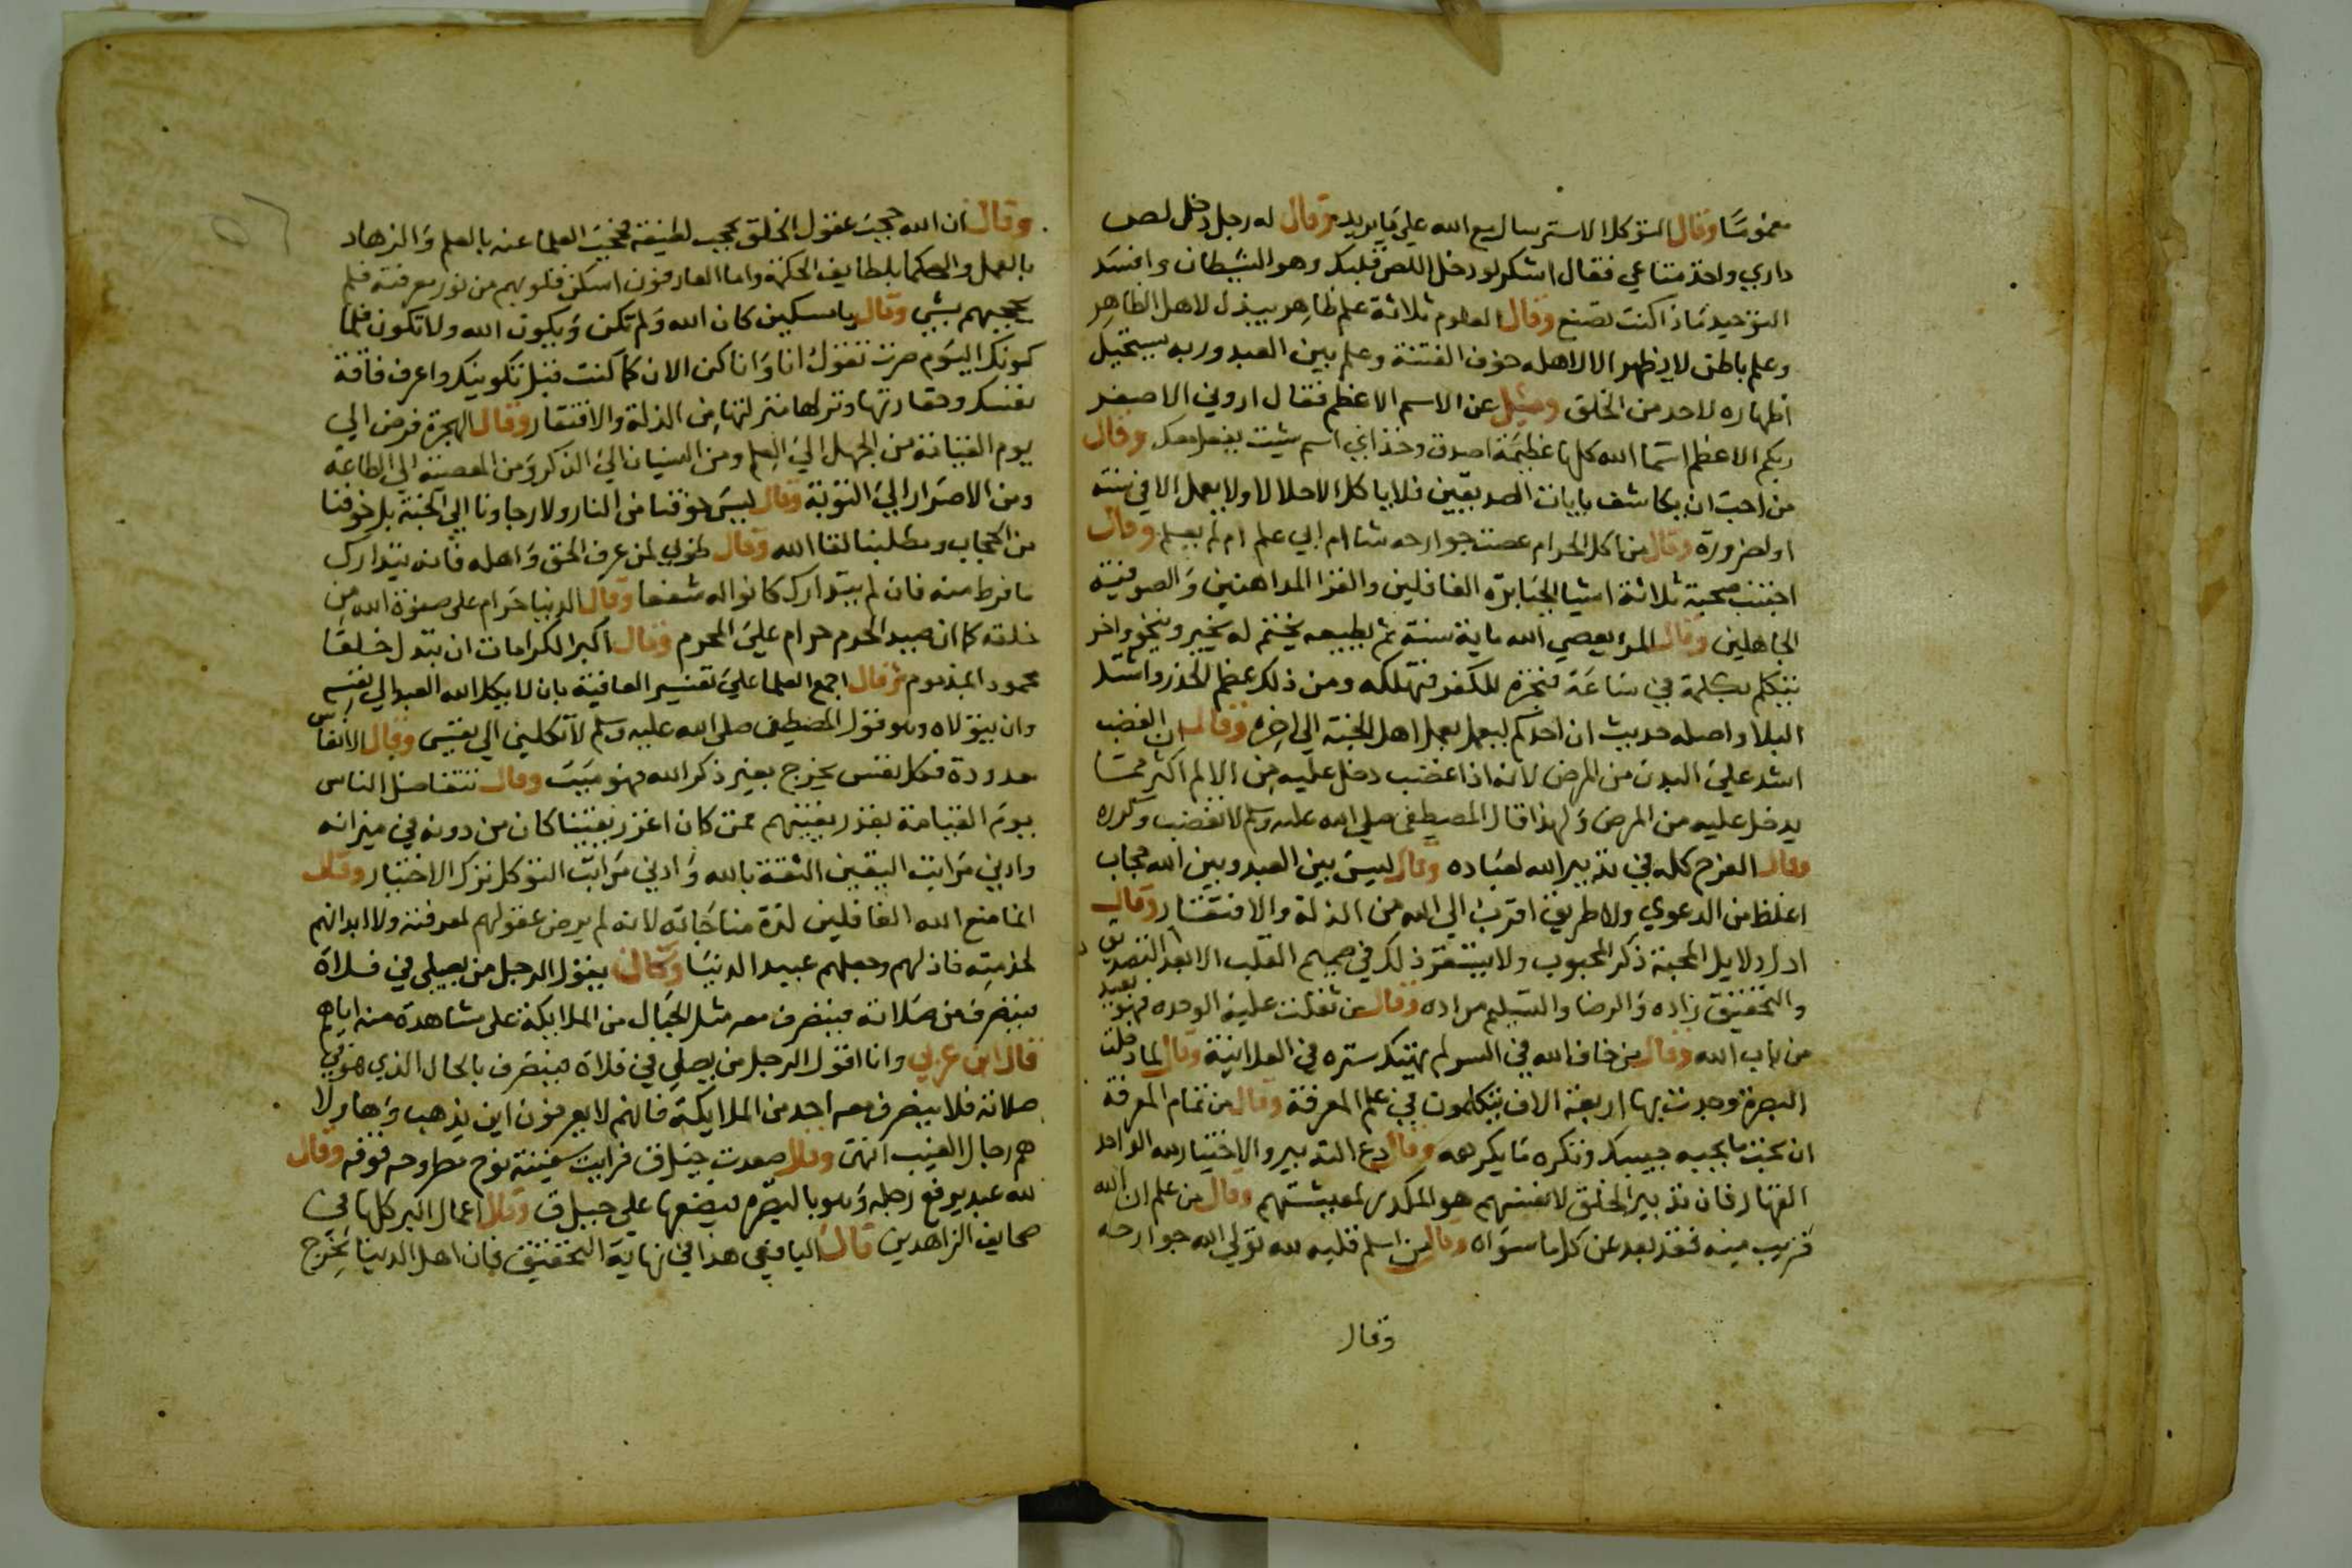 مغموسًا وقال التوكل الاسترسال مع الله علي ما يريد وقال له رجل دخل لص
داري واخذ متاعي فقال اشكر لو دخل اللص قلبك وهو الشيطان وافسد
التوحيد ماذا كنت تصنع وقال العلوم ثلاثة علم ظاهر يبذل لاهل الظاهر
وعلم باطن لا يظهر الا لاهله خوف الفتنة وعلم بين العبد وربه يستحيل
اظهاره لاحد من الخلق وسئل عن الاسم الاعظم فقال اروني الاصغر
اريكم الاعظم اسما الله كلها عظيمة اصدق وخذ اي اسم شيت يفعل معك وقال
من احب ان يكاشف بايات الصديقين فلا ياكل الا حلالا ولا يعمل الا في سنة
او لضرورة وقال من اكل الحرام عصت جوارحه شا ام ابي علم ام لم يعلم وقال
اجتنب صحبة ثلاثة اشيا الجبابرة الغافلين والقرا المداهنين والصوفية
الجاهلين وقال المر يعصي الله ماية سنة ثم يطيعه يختم له بخير وينجو واخر
يتكلم بكلمة في ساعة فتجره للكفر فتهلكه ومن ذلك عظم الحذر واشتد
البلا واصله حديث ان احدكم ليعمل بعمل اهل الجنة الي اخره وقال ان الغضب
اشد علي البدن من المرض لانه اذا غضب دخل عليه من الالم اكثر مما
يدخل عليه من المرض ولهذا قال المصطفي صلي الله عليه وسلم لا تغضب وكرره
وقال الفرح كله في تدبير الله لعباده وقال ليس بين العبد وبين الله حجاب
اغلظ من الدعوي ولا طريق اقرب الي الله من الذلة والافتقار وقال
ادل دلايل المحبة ذكر المحبوب ولا يستقر ذلك في صميم القلب الا بعد التصديق
والتحقيق زاده والرضا والتسليم مراده وقال من ثقلت عليه الوحده فهو بعيد
من باب الله وقال من خاف الله في السر لم يهتك ستره في العلانية وقال لما دخلت
البصرة وجدت بها اربعة الاف يتكلمون في علم المعرفة وقال من تمام المعرفة
ان تحب ما يحبه حبيبك وتكره ما يكرهه وقال دع التدبير والاختيار لله الواحد
القهار فان تدبير الخلق لانفسهم هو المكدر لمعيشتهم وقال من علم ان الله
قريب منه فقد بعد عن كل ما سواه وقال من اسلم قلبه لله تولي الله جوارحه
وقال
وقال ان الله حجب عقول الخلق بحجب لطيفة فحجب العلما عنه بالعلم والزهاد
بالعمل والحكما بلطايف الحكمة واما العارفون اسكن قلوبهم من نور معرفته فلم
يحجبهم بشي وقال يا مسكين كان الله ولم تكن ويكون الله ولا تكون فلما
كونك اليوم صرت تقول انا وانا كن الان كما كنت قبل تكوينك واعرف فاقة
نفسك وحقارتها ونزلها منزلتها من الذلة والافتقار وقال الهجرة فرض الي
يوم القيامة من الجهل الي العلم ومن النسيان الي الذكر ومن المعصية الي الطاعة
ومن الاصرار الي التوبة وقال ليس خوفنا من النار ولا رجاونا الي الجنة بل خوفنا
من الحجاب ومطلبنا لقا الله وقال طوبي لمن عرف الحق واهله فانه يتدارك
ما فرط منه فان لم يتدارك كانوا له شفعا وقال الدنيا حرام علي صفوة الله من
خلقه كما ان صيد الحرم حرام علي المحرم وقال اكبر الكرامات ان تبدل خلقا
محمود المذموم وقال اجمع العلما علي تفسير العافية بان لا يكل الله العبد الي نفسه
وان يتولاه وهو قول المصطفي صلي الله عليه وسلم لا تكلني الي نفسي وقال الانفاس
معدودة فكل نفس يخرج بغير ذكر الله فهو ميت وقال تتفاضل الناس
يوم القيامة بقدر يقينهم فمن كان اغزر يقينا كان من دونه في ميزانه
وادني مراتب اليقين الثقة بالله وادني مراتب التوكل ترك الاختيار وقال
انما منع الله الغافلين لذة مناجاته لانه لم يرض عقولهم لمعرفته ولا ابدانهم
لخدمته فاذلهم وجعلهم عبيد الدنيا وكان يقول الرجل من يصلي في فلاة
فينصرف من صلاته فينصرف معه مثل الجبال من الملايكة علي مشاهدة منه اياهم
قال ابن عربي وانا اقول الرجل من يصلي في فلاة فينصرف بالحال الذي هو في
صلاته فلا ينصرف معه احد من الملايكة فانهم لا يعرفون اين يذهب وهاولا
هم رجال الغيب انتهى وقال صعدت جبل ق فرايت سفينة نوح مطروحه فوقه وقال
لله عبد يرفع رجله وهو بالبصره فيضعها علي جبل ق وقال اعمال البر كلها في
صحايف الزاهدين قال اليافعي هذا في نهاية التحقيق فان اهل الدنيا يخرج